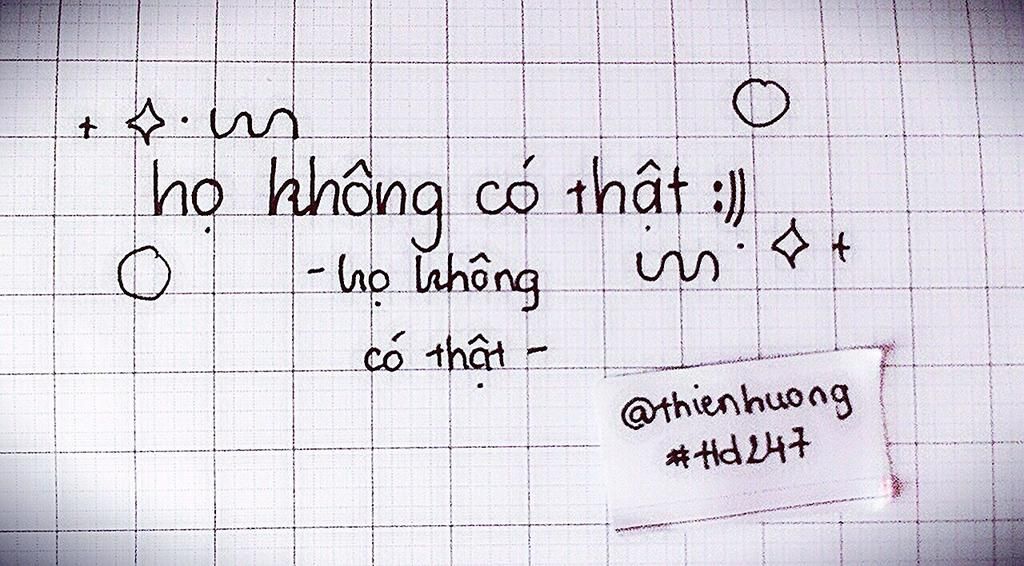 họ không có thật :))
- họ không
có thật -
@thienhuong
#tld247